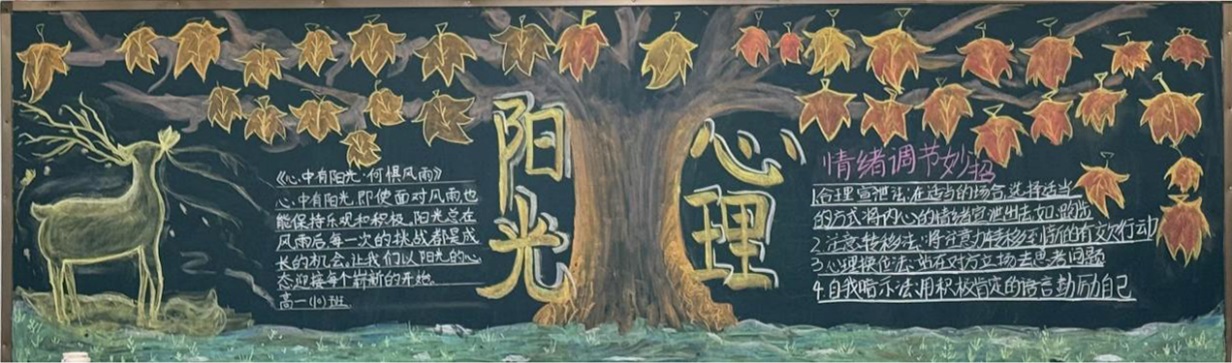 《心中有阳光·何惧风雨》
心中有阳光,即使面对风雨也
能保持乐观和积极,阳光总在
风雨后每一次的挑战都是成
长的机会,让我们以阳光的心
态迎接每个崭新的开始。
高一(10)班
阳光
心理
情绪调节妙招
1.合理宣泄法:在适当的场合选择适当
的方式将内心的情绪宣泄出去如:跑步
2.注意转移法:将注意力转移到情的有文次行动
3.心理换位法:站在对方立场去思考问题
4.自我暗示法:用积极肯定的语言勉励自己